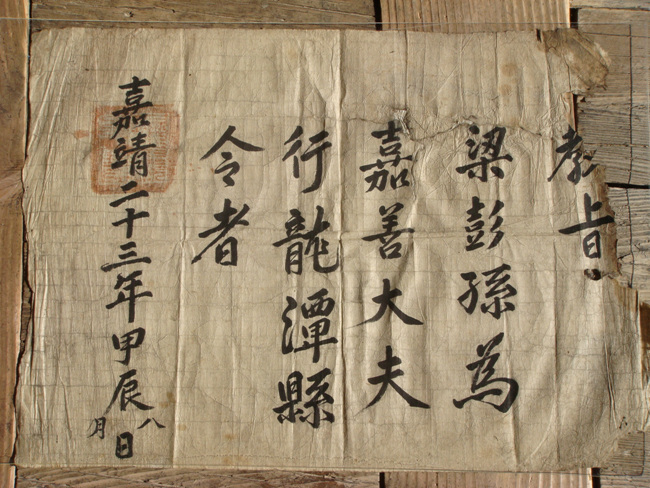 教旨
梁彭孫為
嘉善大夫
行龍潭縣
令者
嘉靖二十三年甲辰八月日